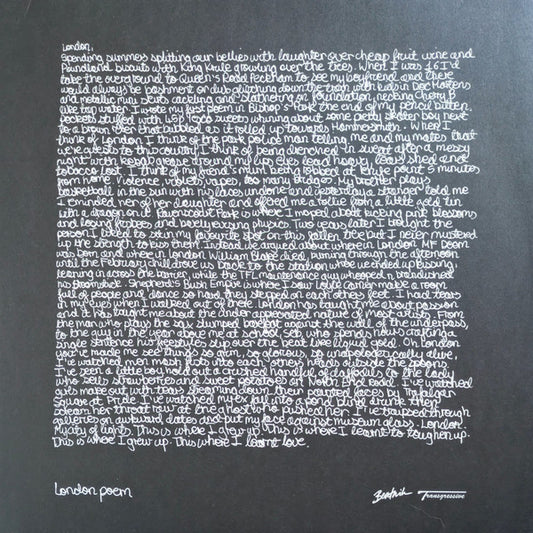 London,
Spending summers splitting our bellies with laughter over cheap fruit wine and
Poundland biscuits with King Krule growling over the trees. When I was 16 I'd
take the overground to Queen's Road Peckham to see my boyfriend and there
would always be bashment or dub glitching down the train with kids in Doc Martens
and metallic mini skirts cackling and slathering on foundation, necking Cherry B
like tap water. I wrote my first poem in Bishop's Park the end of my pencil bitten,
pockets stuffed with 45p Tesco sweets whining about some pretty skater boy next
to a brown river that bubbled as it rolled up towards Hammersmith. When I
think of London I think of the park police man telling me and my mates that
we're guests to this country I think of being drenched in sweat after a messy
night with kebab grease around my lips eyes lead heavy, tears shed and
tobacco lost. I think of my friend's mum being robbed at knife point 5 minutes
from home. Violence, violets, vapes, too many bridges. My brother plays
basketball in the sun with his laces undone and yesterday a stranger told me
I reminded her of her daughter and offered me a rollie from a little gold tin
with a dragon on it. Ravenscourt Park is where I moped about kicking pink blossoms
and losing frisbees and barely revising physics. Two years later I brought the
person I fancied to sit in my favourite spot on this sailor tree but I never mustered
up the strength to kiss them. Instead we argued about where in London MF Doom
was born and where in London William Blake died, punning through the afternoon
until the February chill drove us back to the station where we ended up kissing,
leaning in across the barrier, while the TFL maintenance guy whooped n brandished
his broomstick. Shepherd's Bush Empire is where I saw Loyle Carner make a room
full of people and dance so hard they stepped on each others feet. I had tears
in my eyes when I walked out of there. London has taught me about passion
and it has taught me about the under appreciated nature of most artists. From
the man who plays the sax slumped barefoot against the wall of the underpass,
to the guy in the year above me at school, Seb, who spends hours crafting a
single sentence his freestyles slip over the beat like liquid gold. Oh London
you've made me see things so grim, so glorious, so unapologetically alive,
I've watched men mash fists into each other's heads outside the spoons
I've seen a little boy hold out a crushed handful of daffodils to the lady
who sells strawberries and sweet potatoes on North End Road. I've watched
girls make out with tears streaming down their painted faces by Trafalgar
Square at Pride I've watched my ex fall into a pond blind drunk then
scream her throat raw at the ghost who pushed her. I've traipsed through
galleries on awkward dates and put my face against museum glass. London.
My city of lights. This is where I grew up This is where I learnt to toughen up.
This is where I grew up. This where I learnt love.
London poem
Beatnik Transgressive